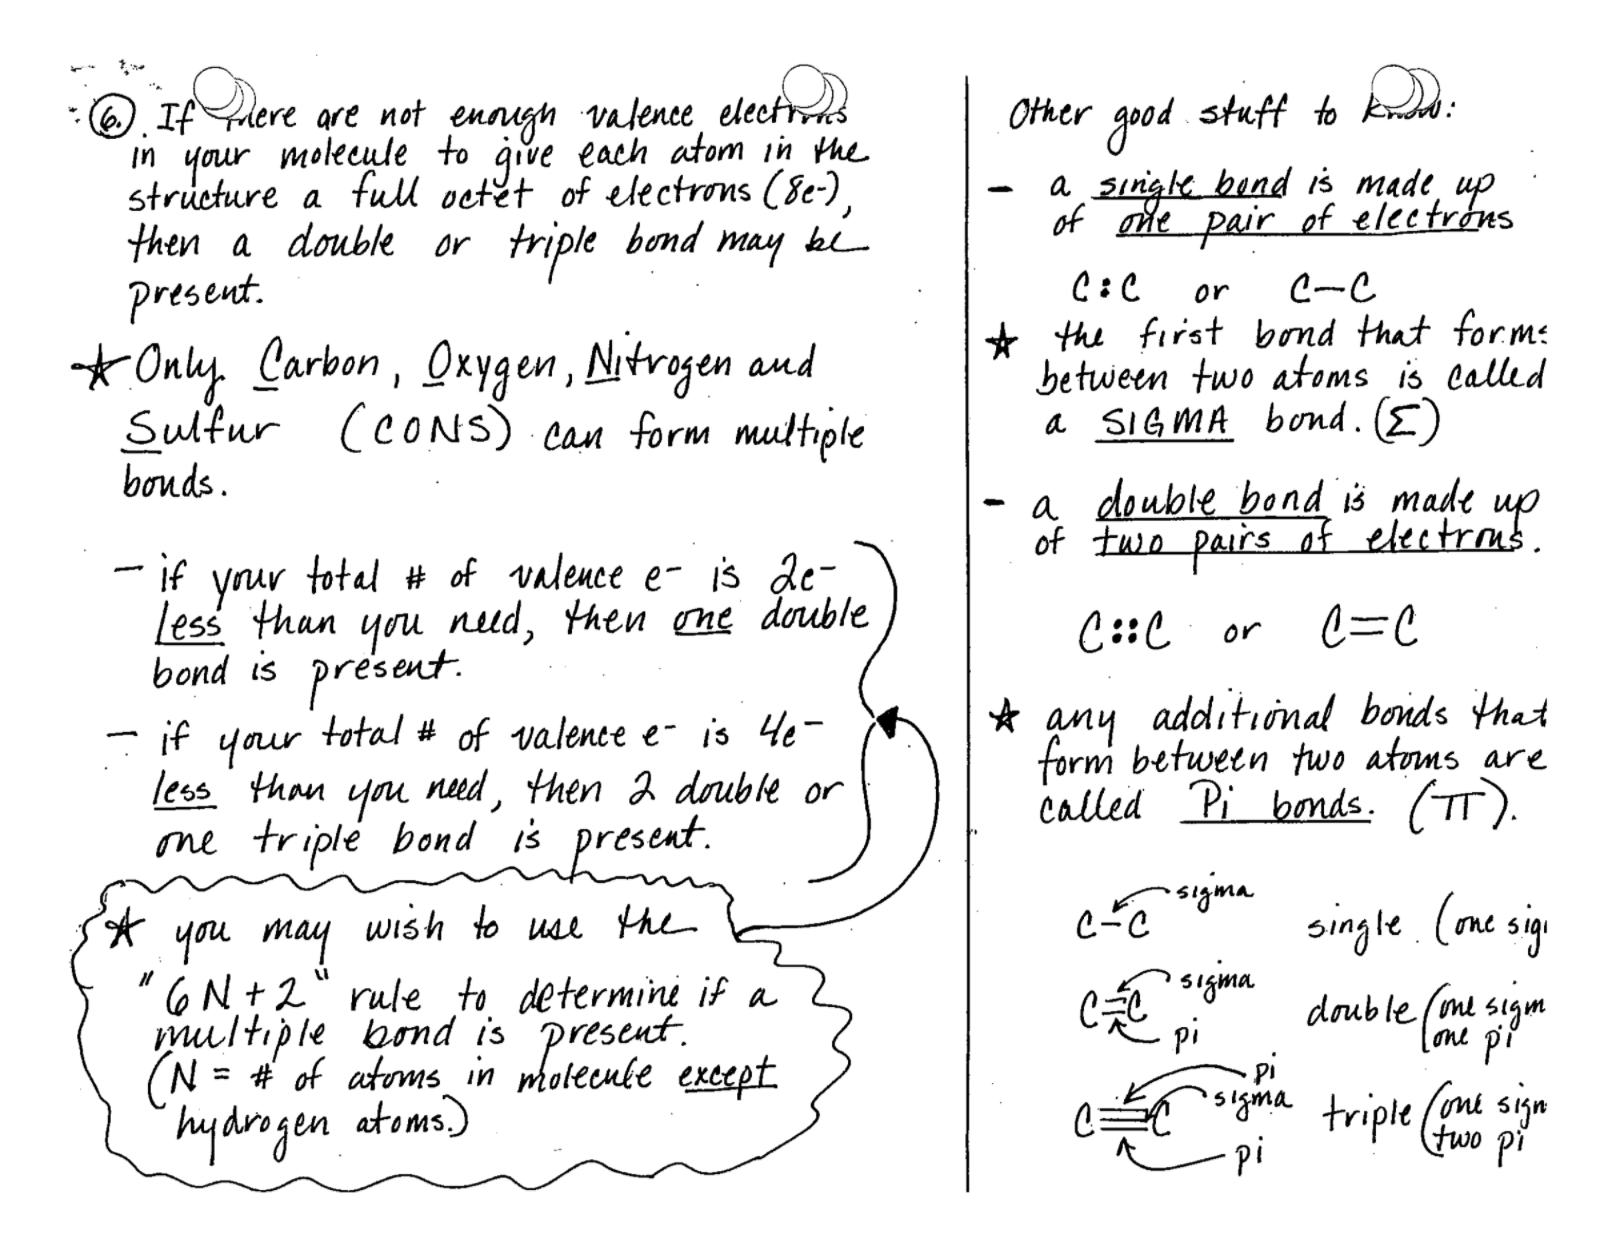 6. If there are not enough valence electrons
in your molecule to give each atom in the
structure a full octet of electrons (8e-),
then a double or triple bond may be
present.
★ Only Carbon, Oxygen, Nitrogen and
Sulfur (CONS) can form multiple
bonds.
– if your total # of valence e- is 2e-
less than you need, then one double
bond is present.
– if your total # of valence e- is 4e-
less than you need, then 2 double or
one triple bond is present.
★ you may wish to use the
"6N+2" rule to determine if a
multiple bond is present.
(N = # of atoms in molecule except
hydrogen atoms.)
Other good stuff to know:
– a single bond is made up
of one pair of electrons
C:C or C–C
★ the first bond that forms
between two atoms is called
a SIGMA bond. (Σ)
– a double bond is made up
of two pairs of electrons.
C::C or C=C
★ any additional bonds that
form between two atoms are
called Pi bonds. (π).
sigma
C–C single (one sig
sigma
C=C double (one sigm
pi one pi
pi
sigma
C≡C triple (one sign
two pi
pi